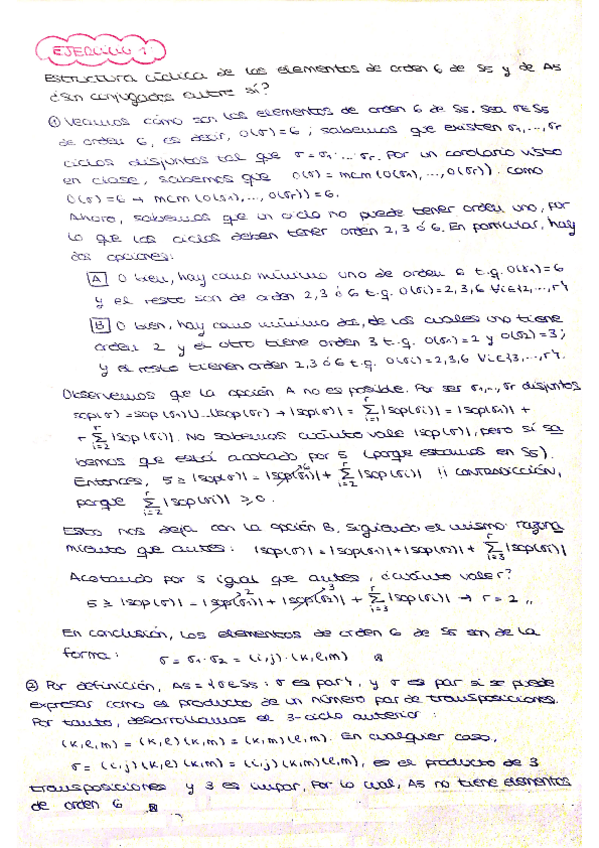 EJERCICIO 1
Estructura cíclica de los elementos de orden 6 de S5 y de A5
¿Son conjugados entre sí?
① Veamos cómo son los elementos de orden 6 de S5. Sea σ∈S5
de orden 6, es decir, O(σ)=6; sabemos que existen σ1,...,σr
ciclos disjuntos tal que σ=σ1·...σr. Por un corolario visto
en clase, sabemos que O(σ) = mcm (O(σ1),...,O(σr)). Como
O(σ)=6 → mcm (O(σ1),...,O(σr))=6.
Ahora, sabemos que un ciclo no puede tener orden uno, por
lo que los ciclos deben tener orden 2, 3 ó 6. En particular, hay
dos opciones:
A O bien, hay como mínimo uno de orden 6 t.q. O(σ1)=6
y el resto son de orden 2,3 ó 6 t.q. O(σi)=2,3,6 ∀i∈{2,...,r}.
B O bien, hay como mínimo dos, de los cuales uno tiene
orden 2 y el otro tiene orden 3 t.q. O(σ1)=2 y O(σ2)=3;
y el resto tienen orden 2,3 ó 6 t.q. O(σi)=2,3,6 ∀i∈{3,...,r}.
Observemos que la opción A no es posible. Por ser σ1,...,σr disjuntos
sop(σ)=sop(σ1)∪...∪sop(σr) → |sop(σ)| = Σ_{i=1}^{r} |sop(σi)| = |sop(σ1)| +
+ Σ_{i=2}^{r} |sop(σi)|. No sabemos cuánto vale |sop(σ)|, pero sí sa
bemos que está acotado por 5 (porque estamos en S5).
Entonces, 5 ≥ |sop(σ)| = |sop(σ1)|^6 + Σ_{i=2}^{r} |sop(σi)| ¡¡ CONTRADICCIÓN,
porque Σ_{i=2}^{r} |sop(σi)| ≥ 0.
Esto nos deja con la opción B. Siguiendo el mismo razona
miento que antes: |sop(σ)| = |sop(σ1)|+|sop(σ2)| + Σ_{i=3}^{r} |sop(σi)|
Acotando por 5 igual que antes, ¿cuánto vale r?
5 ≥ |sop(σ)| = |sop(σ1)|^2 + |sop(σ2)|^3 + Σ_{i=3}^{r} |sop(σi)| → r = 2 ,,
En conclusión, los elementos de orden 6 de S5 son de la
forma: σ = σ1·σ2 = (i,j)·(k,l,m)
② Por definición, A5 = {σ∈S5 : σ es par}, y σ es par si se puede
expresar como el producto de un número par de transposiciones.
Por tanto, desarrollamos el 3-ciclo anterior:
(k,l,m) = (k,l)(k,m) = (k,m)(l,m). En cualquier caso,
σ = (i,j)(k,l)(k,m) = (i,j)(k,m)(l,m), es el producto de 3
transposiciones y 3 es impar, por lo cual, A5 no tiene elementos
de orden 6